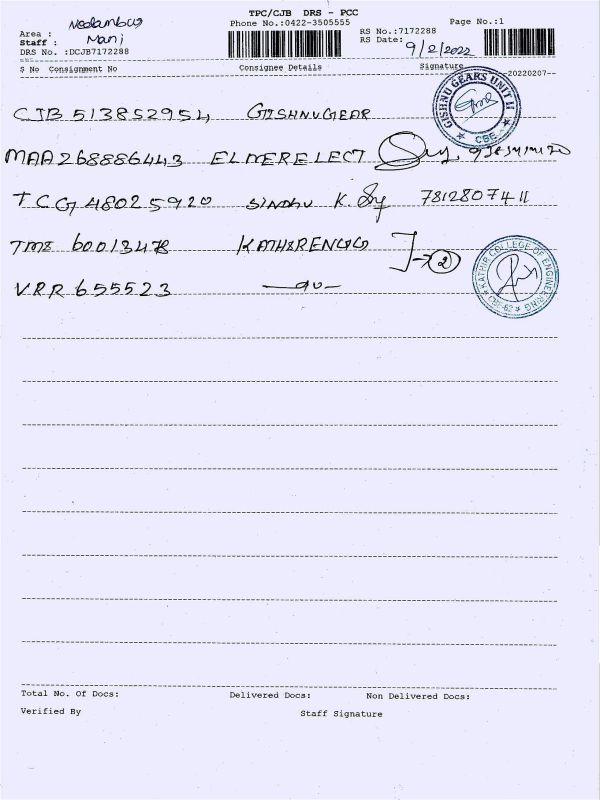 TPC/CJB DRS - PCC
Phone No.:0422-3505555
Page No.:1
Area :
Staff : Mani
DRS No. :DCJB7172288
RS No.:7172288
RS Date: 9/2/2022
S No Consignment No Consignee Details Signature 20220207
CJB 513852954 GISHNUGEAR
GISHNU GEARS UNIT II
CBE
MAA268886443 ELMERELECT
TCG 48025920 SINDHU K. 7812807411
TMS 60013478 2
VRR 655523
KATHIR COLLEGE OF ENGINEERING
CBE-62
Total No. Of Docs: Delivered Docs: Non Delivered Docs:
Verified By Staff Signature